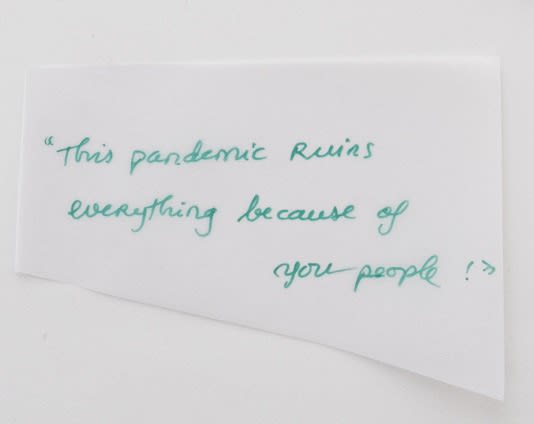 “This pandemic Ruins
everything because of
you people !”